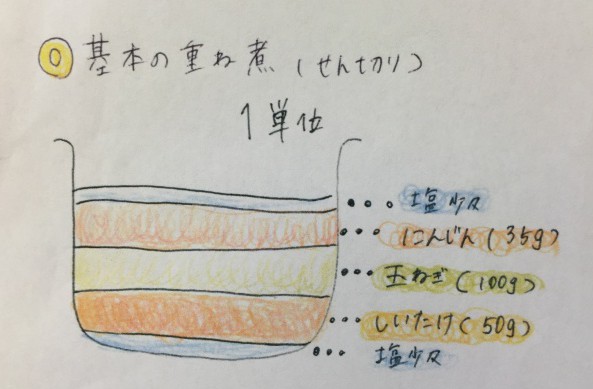 0 基本の重ね煮(せん切り)
1単位
・・・塩少々
・・・にんじん(35g)
・・・玉ねぎ(100g)
・・・しいたけ(50g)
・・・塩少々